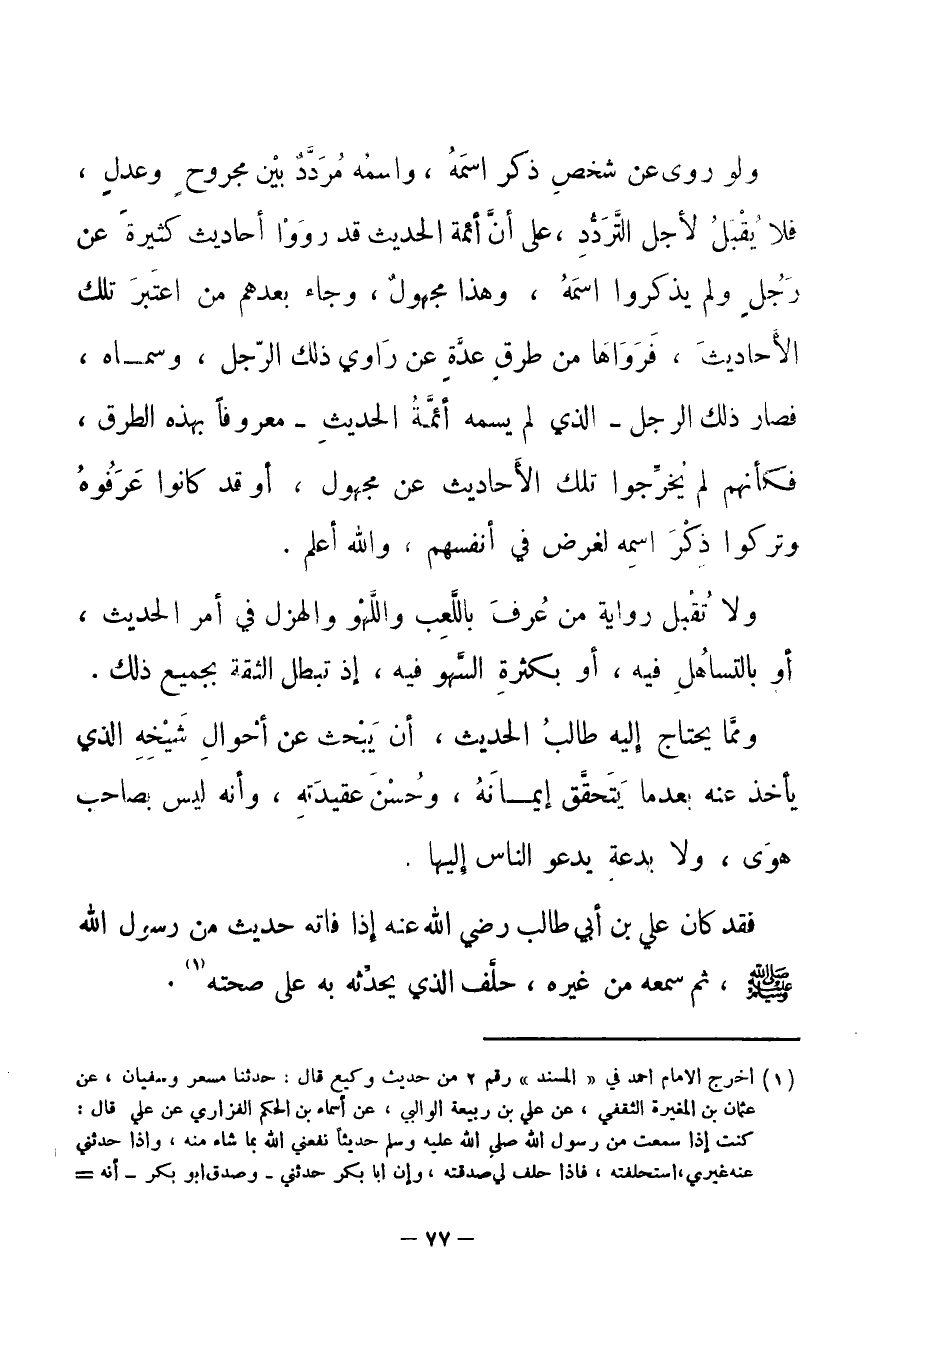 ولو روى عن شخصٍ ذكر اسمَهُ ، واسمُه مُرَدَّدٌ بيْن مجروحٍ وعدلٍ ،
فلا يُقْبَلُ لأجل التَّرَدُّدِ ، على أنَّ أئمة الحديث قد روَوْا أحاديث كثيرةً عن
رَجُلٍ ولم يذكروا اسمَهُ ، وهذا مجهولٌ ، وجاء بعدهم من اعتَبرَ تلك
الأحاديثَ ، فَرَوَاهَا من طرقٍ عدَّةٍ عن رَاوي ذلك الرّجل ، وسمـاه ،
فصار ذلك الرجل ـ الذي لم يسمه أئمَّةُ الحديثِ ـ معروفاً بهذه الطرق ،
فكأنهم لم يُخرِّجوا تلك الأَحاديث عن مجهول ، أو قد كانوا عَرَفُوهُ
وتركوا ذِكْرَ اسمِه لغرض في أنفسهم ، والله أعلم .
ولا تُقْبل رواية من عُرفَ باللَّعِب واللَّهْو والهزل في أمر الحديث ،
أو بالتساهُلِ فيه ، أو بكثرةِ السَّهو فيه ، إذ تبطل الثقة بجميع ذلك .
وممَّا يحتاج إليه طالبُ الحديث ، أن يَبْحث عن أحْوالِ شَيْخِهِ الذي
يأخذ عنه بعدما يَتَحقَّق إيمـانَهُ ، وحُسْنَ عقيدَتهِ ، وأنه ليس بصاحب
هوَى ، ولا بدعةٍ يدعو الناس إليها .
فقد كان علي بن أبي طالب رضي الله عنه إذا فاته حديث من رسول الله
ﷺ ، ثم سمعه من غيره ، حلَّف الذي يحدِّثه به على صحته (١) .
(١) اخرج الامام احمد في « المسند » رقم ٢ من حديث وكيع قال : حدثنا مسعر وسفيان ، عن
عثمان بن المغيرة الثقفي ، عن علي بن ربيعة الوالبي ، عن أسماء بن الحكم الفزاري عن علي قال :
كنت إذا سمعت من رسول الله صلى الله عليه وسلم حديثاً نفعني الله بما شاء منه ، واذا حدثني
عنه غيري ، استحلفته ، فاذا حلف لي صدقته ، وإن ابا بكر حدثني ـ وصدق ابو بكر ـ أنه =
— ٧٧ —